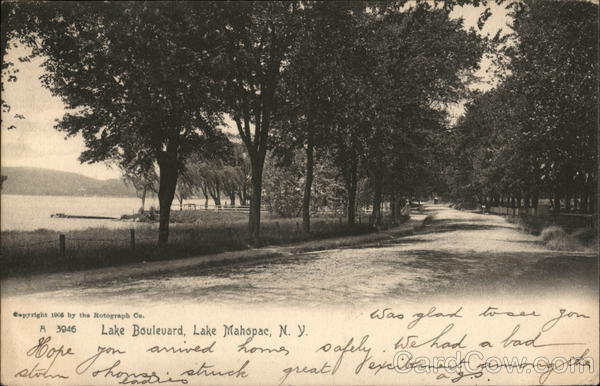 Copyright 1905 by the Rotograph Co.
A 3946 Lake Boulevard, Lake Mahopac, N. Y.
Was glad to see you
Hope you arrived home safely. We had a bad
storm & house struck great excitement among the
ladies
CardCow.com